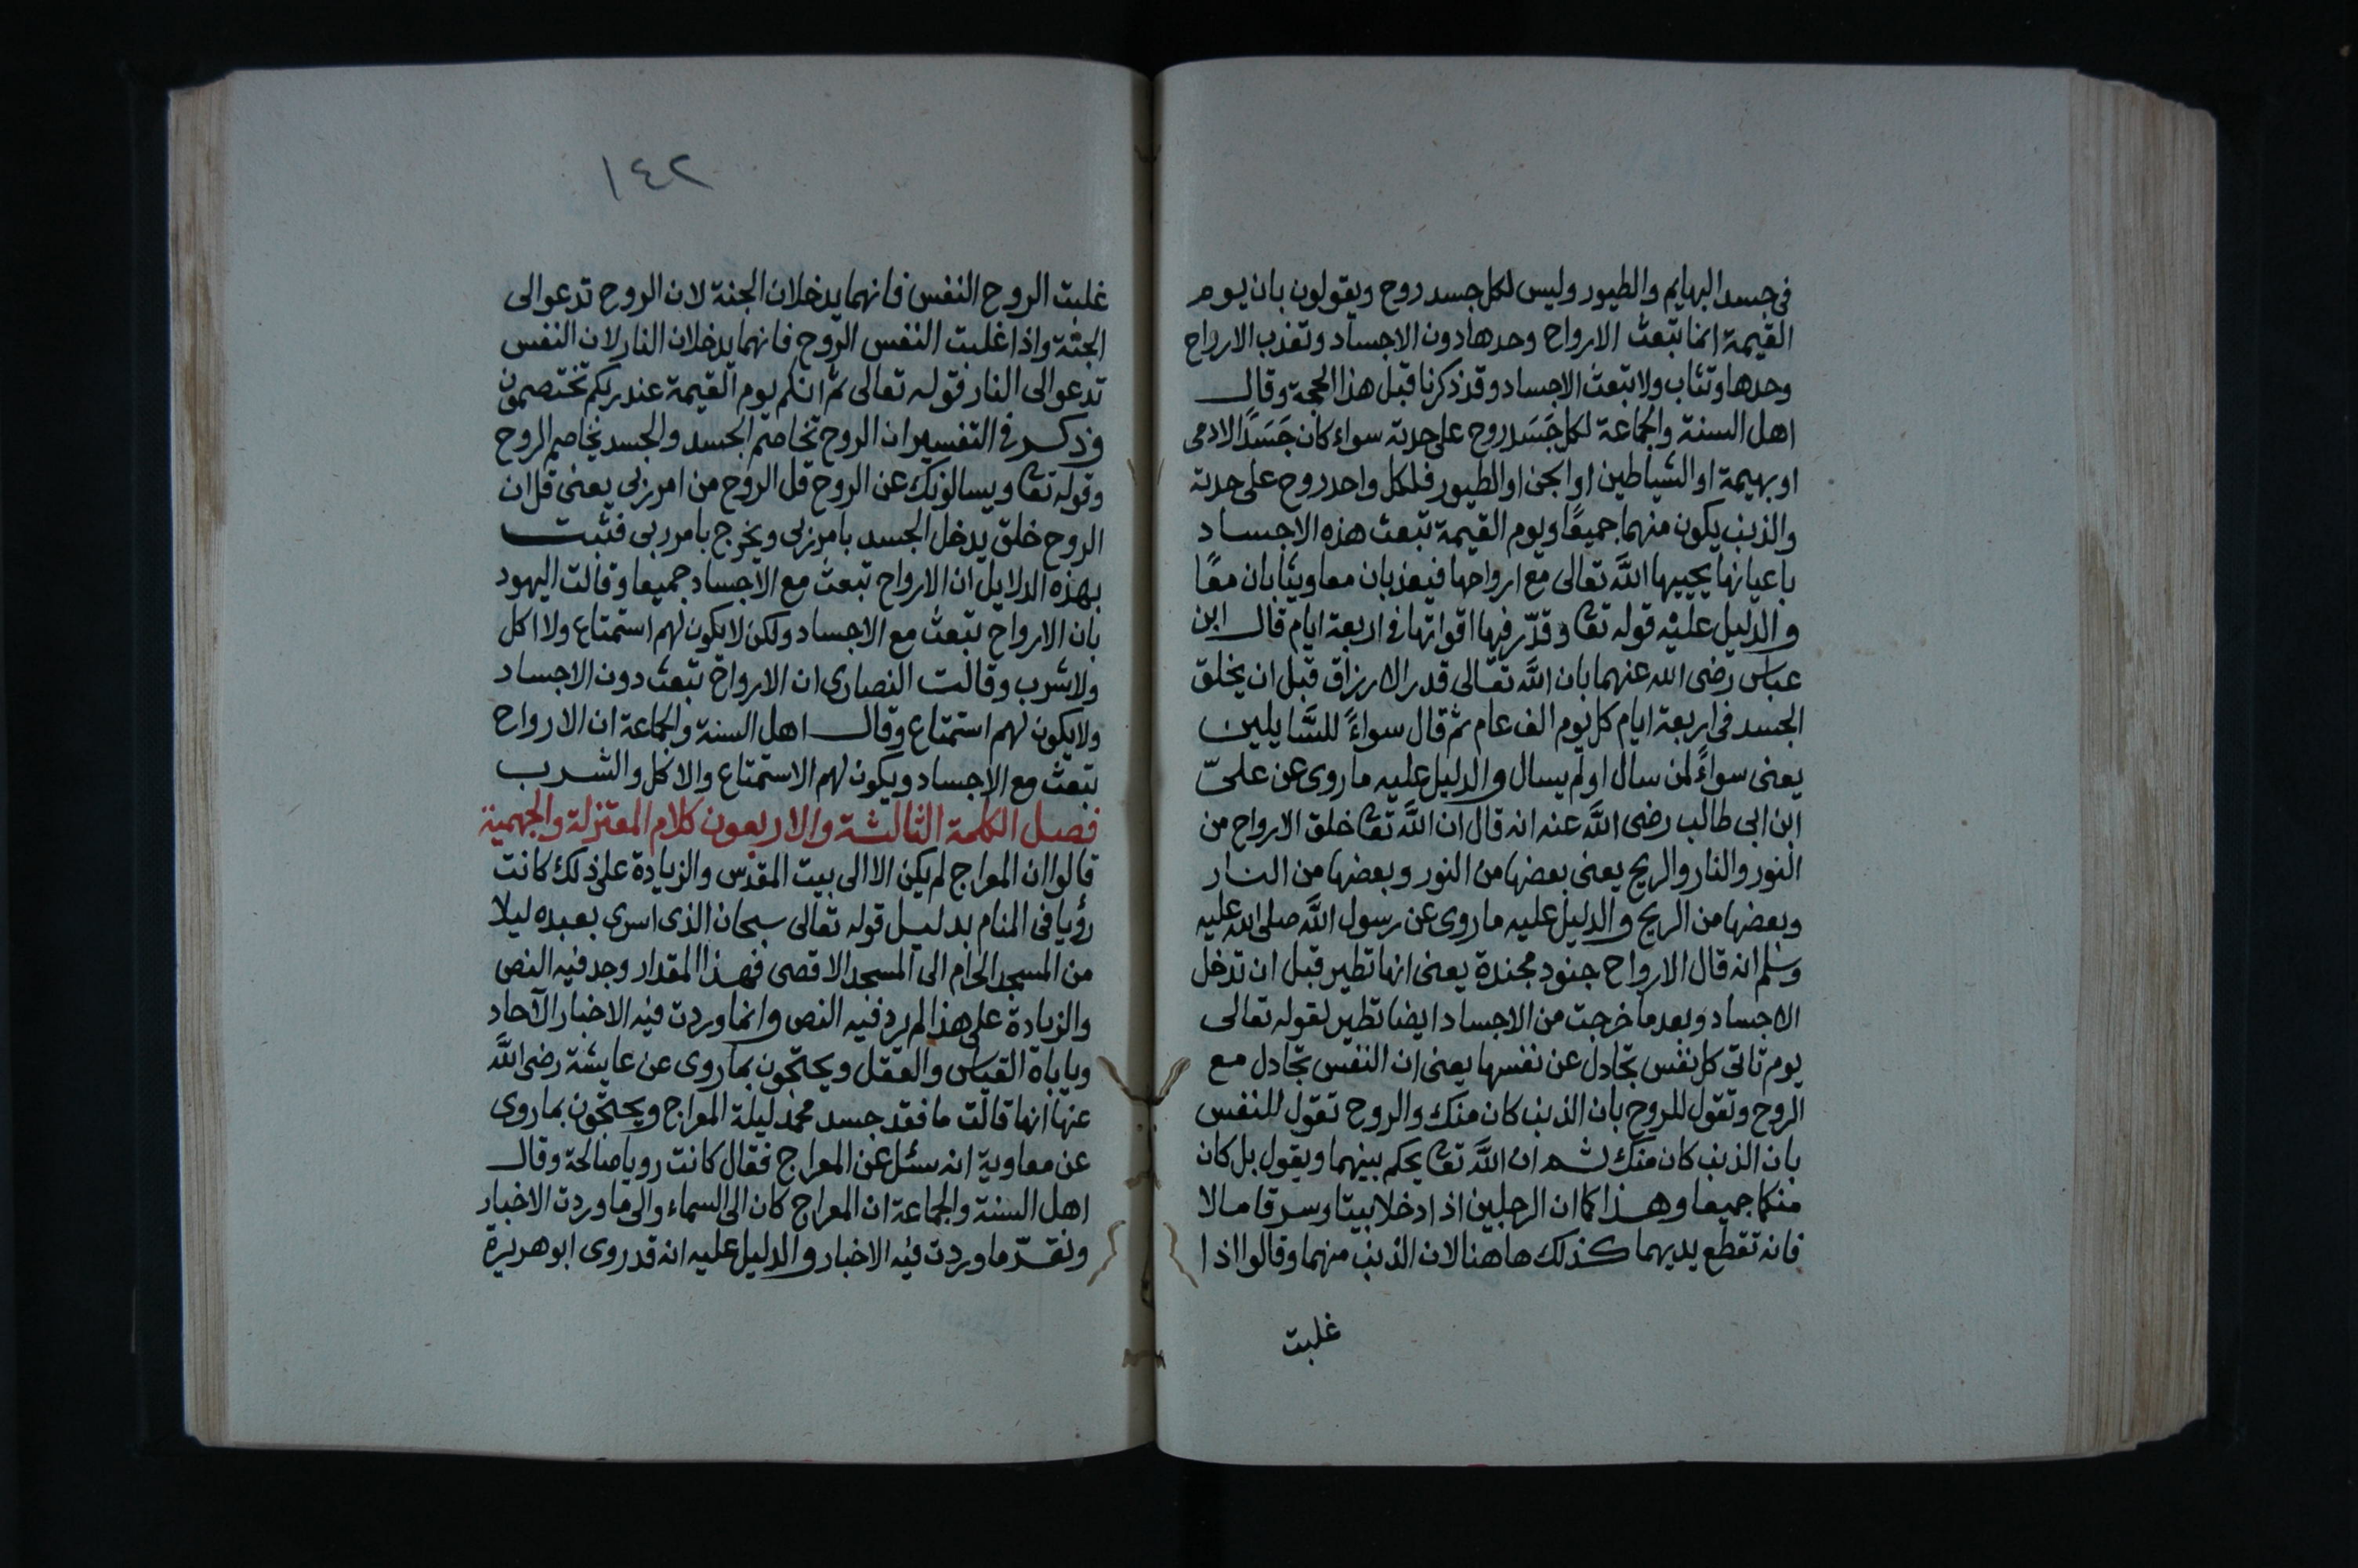 في جسد البهايم والطيور وليس لكل جسد روح ويقولون بان يوم
القيمة انما تبعث الارواح وحدها دون الاجساد وتعذب الارواح
وحدها وتثاب ولا تبعث الاجساد وقد ذكرنا قبل هذا الحجة وقال
اهل السنة والجماعة لكل جَسَد روح على حدته سواء كان جَسَدًا الادمى
او بهيمة او الشياطين او الجن او الطيور فلكل واحد روح على حدته
والذنب يكون منهما جميعًا ويوم القيمة تبعث هذه الاجساد
باعيانها يحييها اللَّه تعالى مع ارواحها فيعذبان معا ويثابان معًا
والدليل عليه قوله تعا وقدّر فيها اقواتها فى اربعة ايام قال ابن
عباس رضى الله عنهما بان اللَّه تعالى قدر الارزاق قبل ان يخلق
الجسد فى اربعة ايام كل يوم الف عام ثم قال سواءً للسَّايلين
يعنى سواءً لمن سال او لم يسال والدليل عليه ما روى عن علىّ
ابن ابى طالب رضى اللَّه عنه انه قال ان اللَّه تعا خلق الارواح من
النور والنار والريح يعنى بعضها من النور وبعضها من النار
وبعضها من الريح والدليل عليه ما روى عن رسول اللَّه صلى الله عليه
وسلم انه قال الارواح جنود مجندة يعنى انها تطير قبل ان تدخل
الاجساد وبعد ما خرجت من الاجساد ايضا تطير لقوله تعالى
يوم تاتى كل نفس تجادل عن نفسها يعنى ان النفس تجادل مع
الروح وتقول للروح بان الذنب كان منك والروح تقول للنفس
بان الذنب كان منك ثم ان اللَّه تعا يحكم بينهما ويقول بل كان
منكما جميعا وهذا كما ان الرجلين اذا دخلا بيتا وسرقا مالا
فانه تقطع يديهما كذلك هاهنا لان الذنب منهما وقالوا اذا
غلبت
١٤٢
غلبت الروح النفس فانهما يدخلان الجنة لان الروح تدعو الى
الجنة واذا غلبت النفس الروح فانهما يدخلان النار لان النفس
تدعو الى النار قوله تعالى ثم انكم يوم القيمة عند ربكم تختصمون
وذكر فى التفسير ان الروح تخاصم الجسد والجسد يخاصم الروح
وقوله تعا ويسالونك عن الروح قل الروح من امر ربى يعنى قل ان
الروح خلق يدخل الجسد بامر ربى ويخرج بامر ربى فثبت
بهذه الدلايل ان الارواح تبعث مع الاجساد جميعا وقالت اليهود
بان الارواح تبعث مع الاجساد ولكن لا يكون لهم استمتاع ولا اكل
ولا شرب وقالت النصارى ان الارواح تبعث دون الاجساد
ولا يكون لهم استمتاع وقال اهل السنة والجماعة ان الارواح
تبعث مع الاجساد ويكون لهم الاستمتاع والاكل والشرب
فصل الكلمة الثالثة والاربعون كلام المعتزلة والجهمية
قالوا ان المعراج لم يكن الا الى بيت المقدس والزيادة على ذلك كانت
رؤيا فى المنام بدليل قوله تعالى سبحان الذى اسرى بعبده ليلا
من المسجد الحرام الى المسجد الاقصى فهذا المقدار وجد فيه النص
والزيادة على هذا لم يرد فيه النص وانما وردت فيه الاخبار الآحاد
وياباه القياس والعقل ويحتجون بما روى عن عايشة رضى اللَّه
عنها انها قالت ما فقد جسد محمد ليلة المعراج ويحتجون بما روى
عن معاوية انه سئل عن المعراج فقال كانت رويا صالحة وقال
اهل السنة والجماعة ان المعراج كان الى السماء والى ما وردت الاخبار
ونقدّ ما وردت فيه الاخبار والدليل عليه انه قد روى ابو هريرة